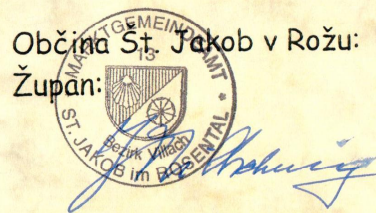 Občina Št. Jakob v Rožu:
Župan:
MARKTGEMEINDEAMT
13
ST. JAKOB im ROSENTAL *
Bezirk Villach